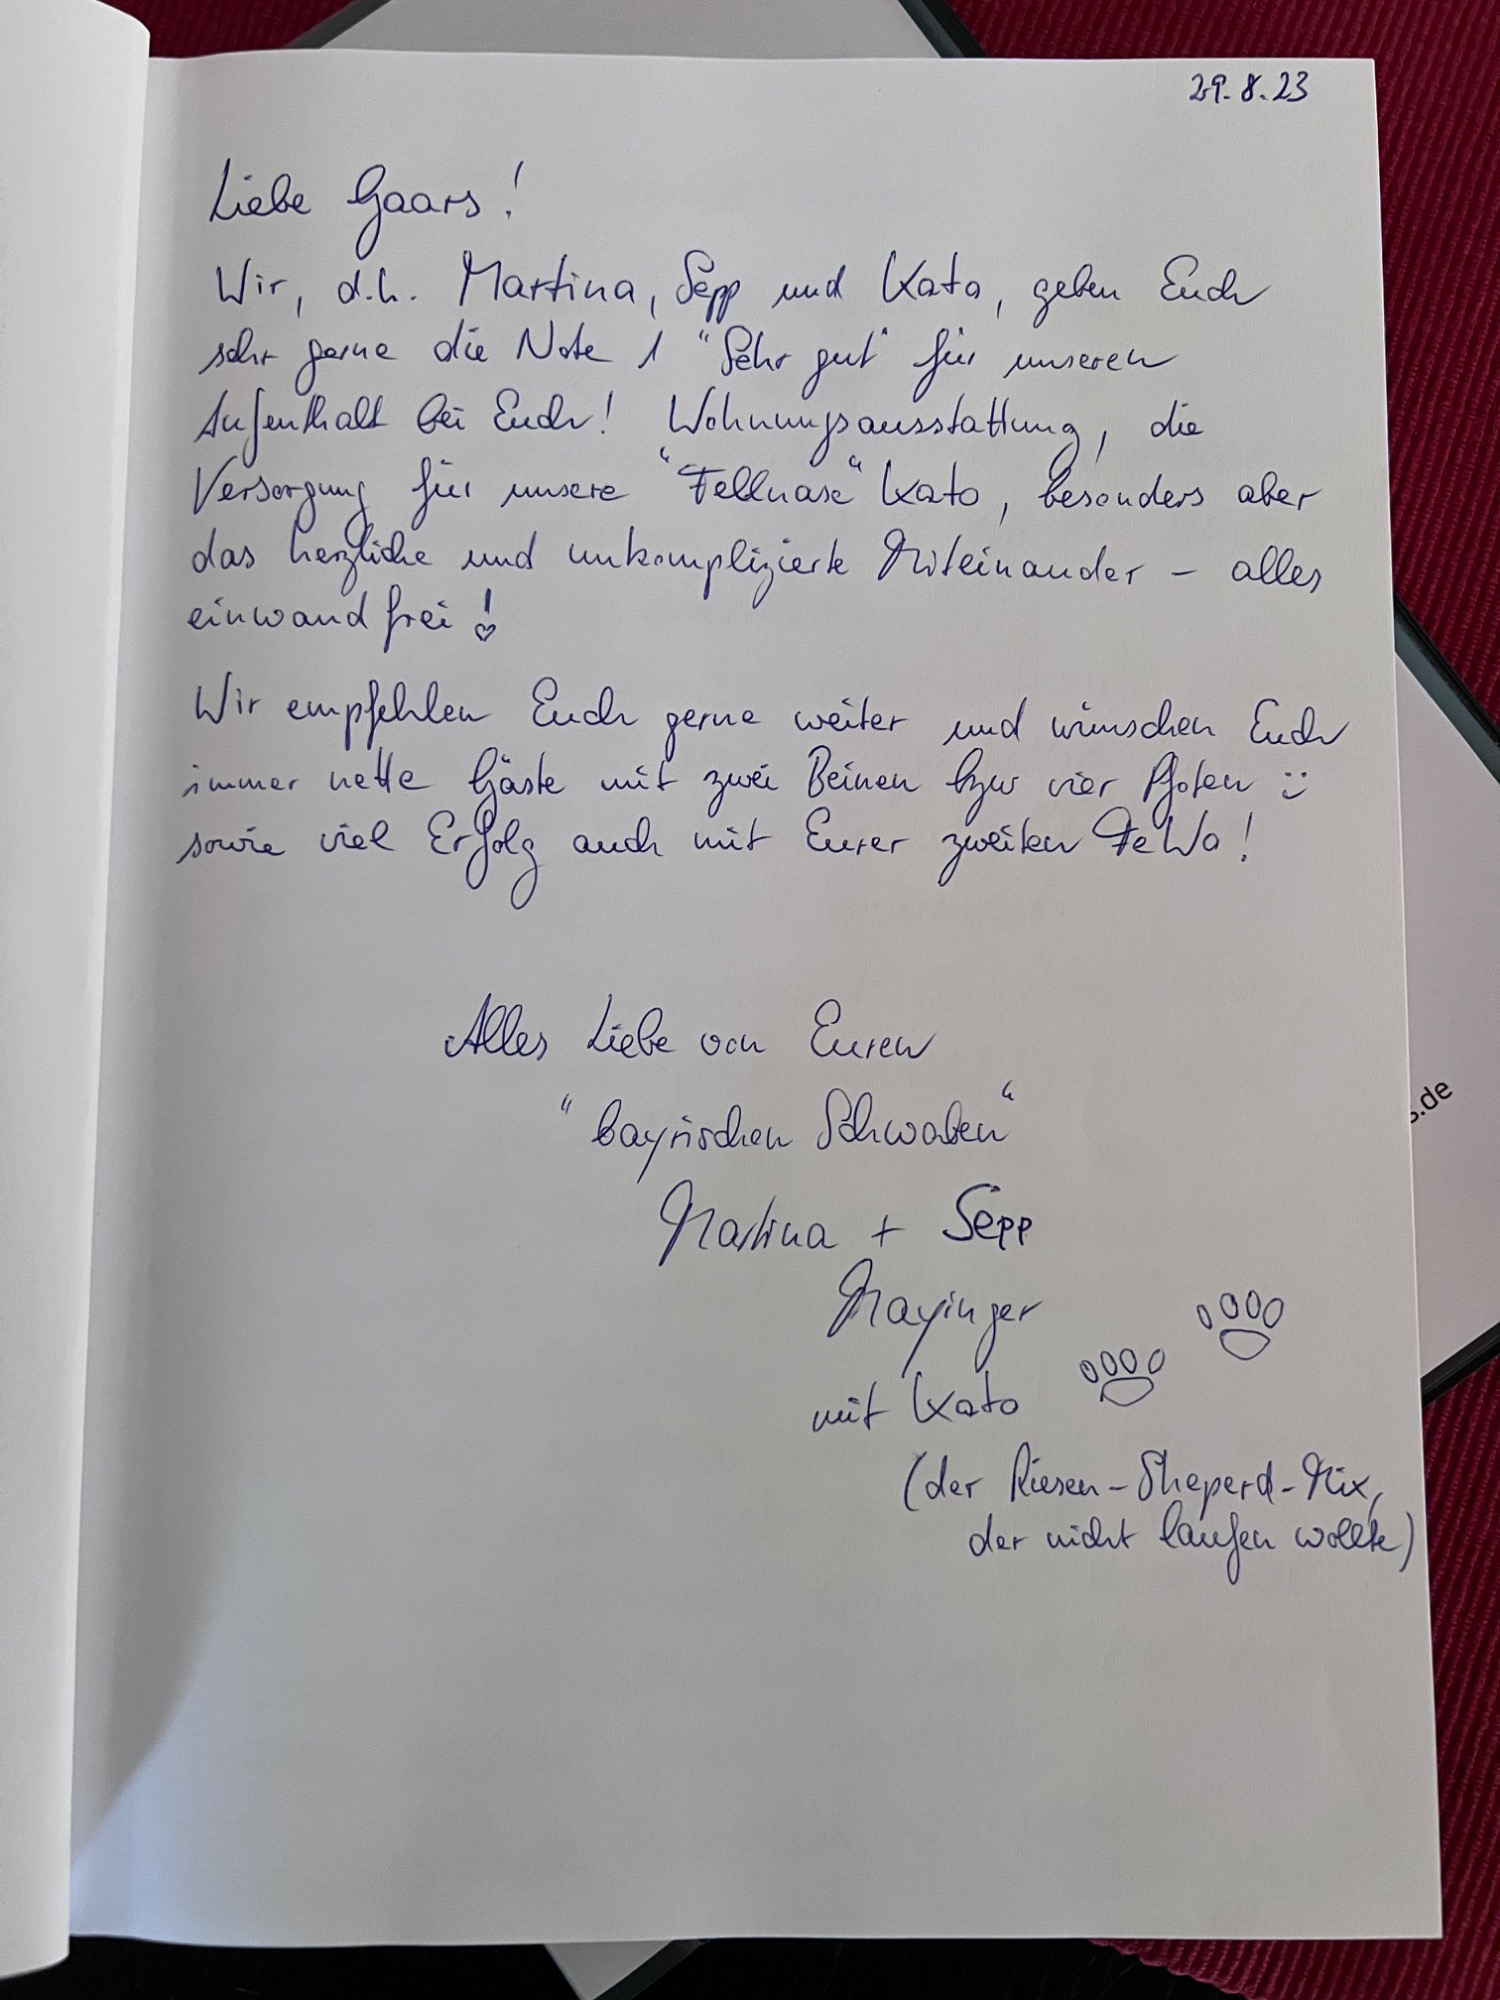 29.8.23
Liebe Gaars!
Wir, d.h. Martina, Sepp und Kato, geben Euch
sehr gerne die Note 1 "Sehr gut" für unseren
Aufenthalt bei Euch! Wohnungsausstattung, die
Versorgung für unsere "Fellnase" Kato, besonders aber
das herzliche und unkomplizierte Miteinander - alles
einwandfrei!
Wir empfehlen Euch gerne weiter und wünschen Euch
immer nette Gäste mit zwei Beinen bzw vier Pfoten :)
sowie viel Erfolg auch mit Eurer zweiten FeWo!
Alles Liebe von Euren
"bayrischen Schwaben"
Martina + Sepp
Mayinger
mit Kato
(der Riesen-Sheperd-Mix,
der nicht laufen wollte)
s.de